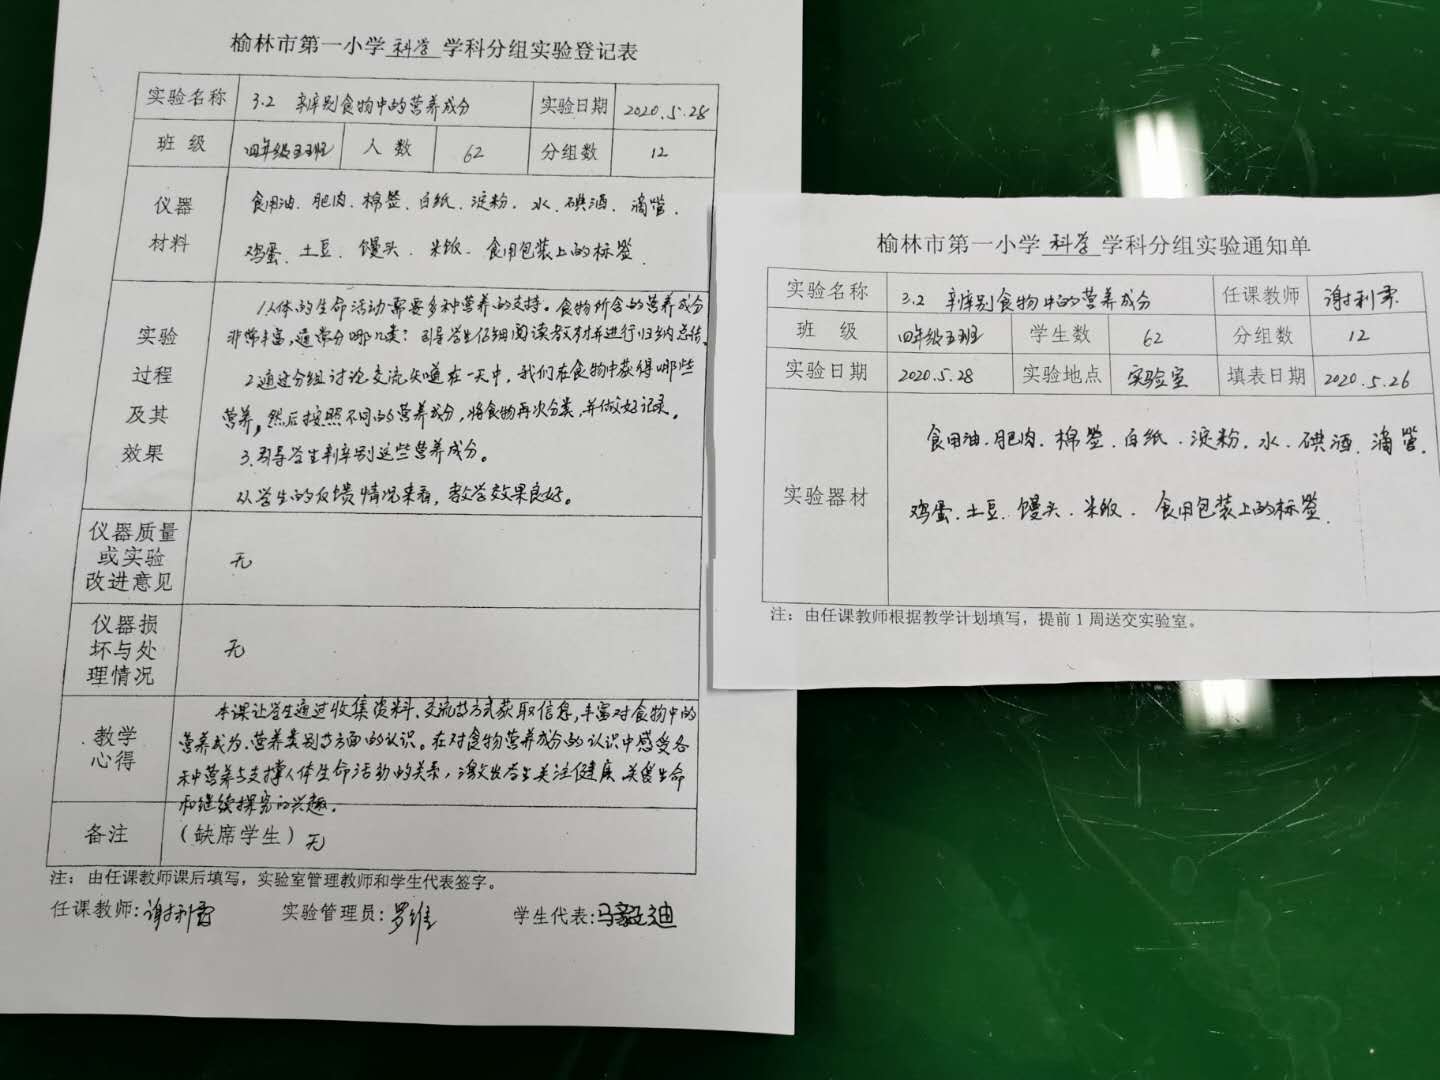 榆林市第一小学 科学 学科分组实验登记表
实验名称 3.2 辨别食物中的营养成分 实验日期 2020.5.28
班 级 四年级五班 人 数 62 分组数 12
仪器 材料
食用油、肥肉、棉签、白纸、淀粉、水、碘酒、滴管、
鸡蛋、土豆、馒头、米饭、食用包装上的标签
实验 过程 及其 效果
1.人体的生命活动需要多种营养的支持。食物所含的营养成分
非常丰富,通常分哪几类?引导学生仔细阅读教材并进行归纳总结。
2.通过分组讨论交流知道在一天中,我们在食物中获得哪些
营养,然后按照不同的营养成分,将食物再次分类,并做好记录。
3.引导学生辨别这些营养成分。
从学生的反馈情况来看,教学效果良好。
仪器质量 或实验 改进意见
无
仪器损 坏与处 理情况
无
教学 心得
本课让学生通过收集资料、交流等方式获取信息,丰富对食物中的
营养成为、营养类别等方面的认识。在对食物营养成分的认识中感受各
种营养与支撑人体生命活动的关系,激发学生关注健康、关爱生命
和继续探究的兴趣。
备注 (缺席学生)无
注:由任课教师课后填写,实验室管理教师和学生代表签字。
任课教师:谢利霞 实验管理员:罗维 学生代表:马毅迪
榆林市第一小学 科学 学科分组实验通知单
实验名称 3.2 辨别食物中的营养成分 任课教师 谢利霞
班 级 四年级五班 学生数 62 分组数 12
实验日期 2020.5.28 实验地点 实验室 填表日期 2020.5.26
实验器材
食用油、肥肉、棉签、白纸、淀粉、水、碘酒、滴管、
鸡蛋、土豆、馒头、米饭、食用包装上的标签
注:由任课教师根据教学计划填写,提前1周送交实验室。